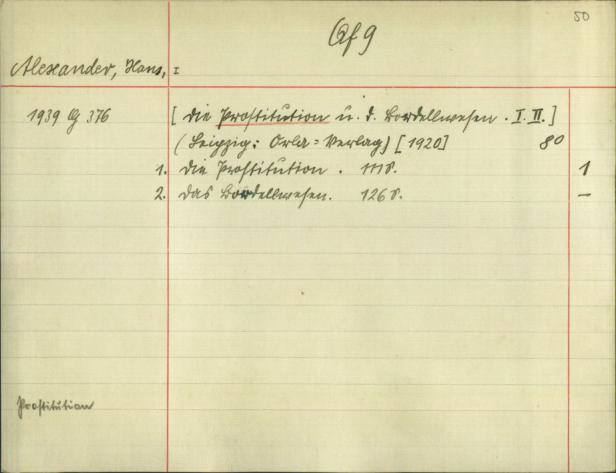 50
Qf 9
Alexander, Hans, I
1939 G 376 [Die Prostitution u. d. Bordellwesen. I. II.]
(Leipzig: Orla=Verlag) [1920] 8o
1. Die Prostitution. 111 S. 1
2. Das Bordellwesen. 126 S. –
Prostitution